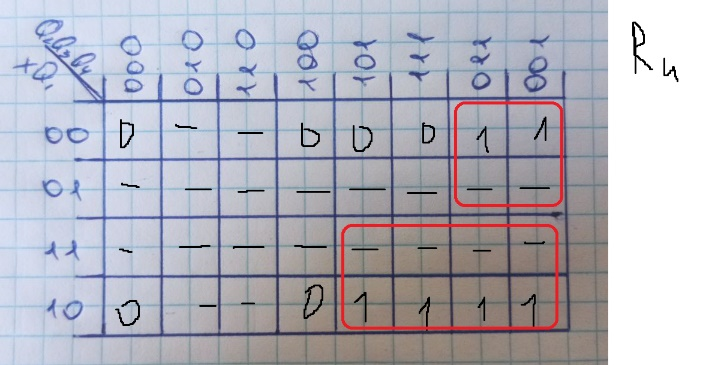 Q₂Q₃Q₄ 000 010 110 100 101 111 011 001 R₄
xQ₁
00 0 - - 0 0 0 1 1
01 - - - - - - - -
11 - - - - - - - -
10 0 - - 0 1 1 1 1